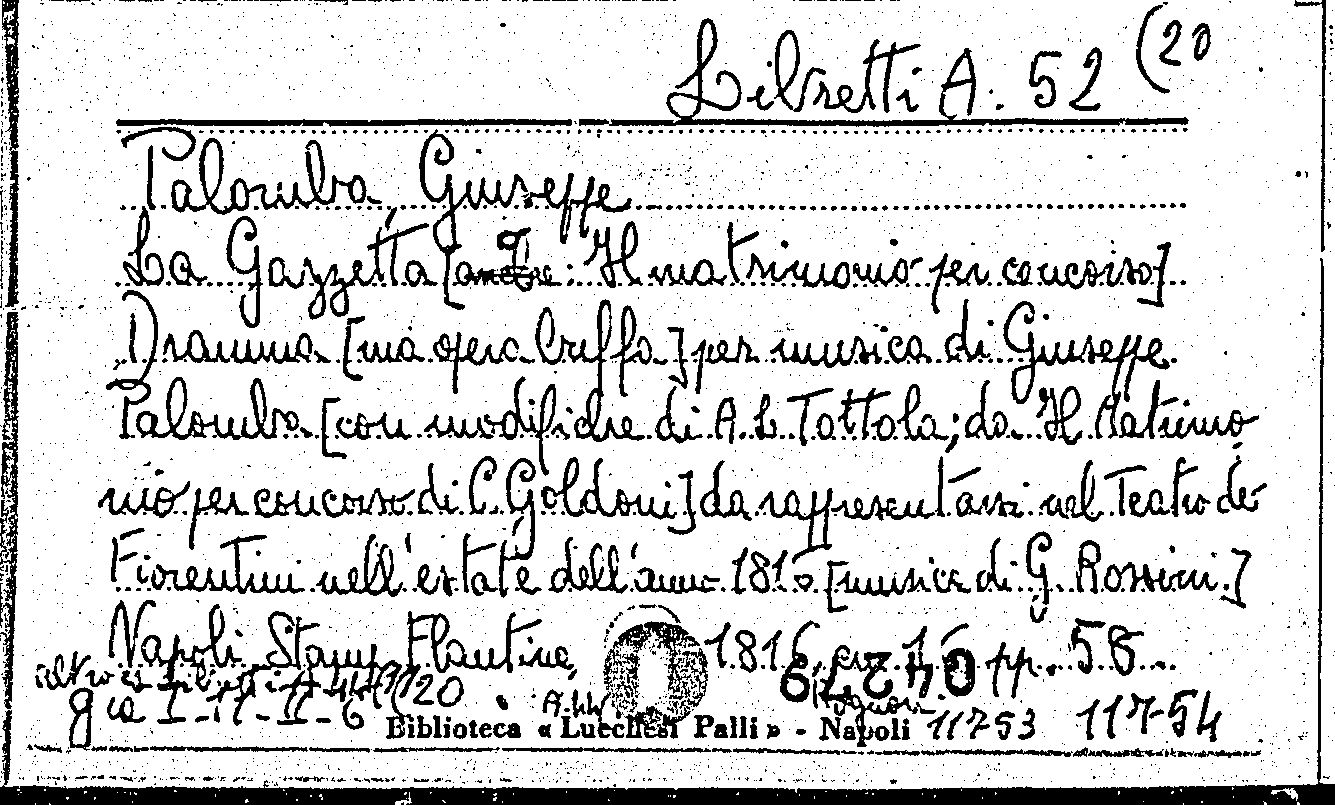 Libretti A. 52 (20
Palomba, Giuseppe
La Gazzetta [anche: Il matrimonio per concorso]
Dramma [ma opera buffa] per musica di Giuseppe
Palomba [con modifiche di A. L. Tottola; da Il Matrimo
nio per concorso di C. Goldoni] da rappresentarsi nel Teatro de'
Fiorentini nell'estate dell'anno 1816 [musica di G. Rossini.]
Napoli, Stamp. Flautina, 1816, 16 pp. 58
04279
già I-11-II-6
Biblioteca « Lucchesi Palli » - Napoli 11753 117-54